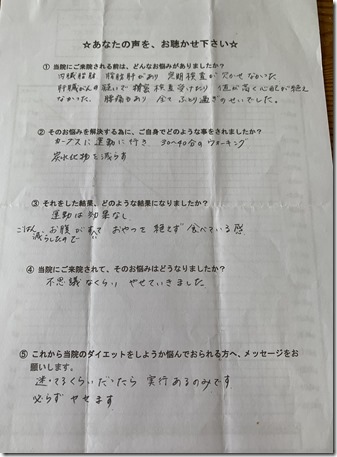 ☆あなたの声を、お聴かせ下さい☆
① 当院にご来院される前は、どんなお悩みがありましたか?
内臓脂肪 脂肪肝があり 定期検査が欠かせなかった
肝臓がんの疑いで 精密検査受けたり 値が高く心配が絶え
なかった。腰痛もあり 全て ふとり過ぎのせいでした。
② そのお悩みを解決する為に、ご自身でどのような事をされましたか?
カーブスに運動に行き 30〜40分のウォーキング
炭水化物を減らす
③ それをした結果、どのような結果になりましたか?
運動は効果なし
ごはん減らしたので お腹がすいて おやつを絶えず 食べている感
④ 当院にご来院されて、そのお悩みはどうなりましたか?
不思議なくらい やせていきました
⑤ これから当院のダイエットをしようか悩んでおられる方へ、メッセージをお
願いします。
迷ってるくらいだったら 実行あるのみです
必らず ヤセます